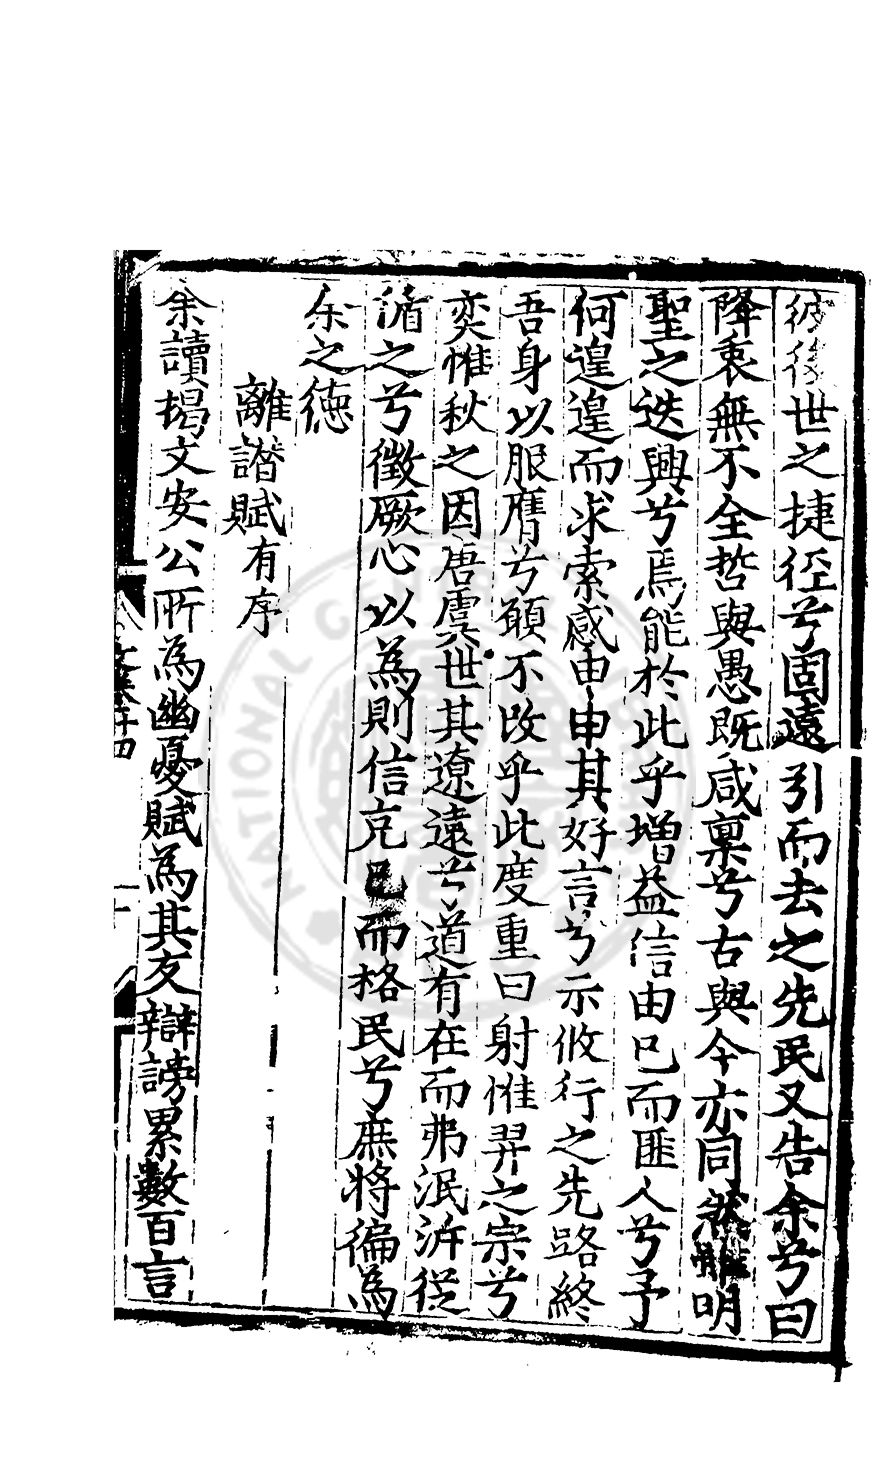 彼後世之捷徑兮固遠引而去之先民又告余兮曰
降衷無不全哲與愚既咸稟兮古與今亦同然雖明
聖之迭興兮焉能於此乎增益信由己而匪人兮予
何遑遑而求索感由申其好言兮示攸行之先路終
吾身以服膺兮願不改乎此度重曰射惟羿之宗兮
奕惟秋之因唐虞世其遼遠兮道有在而弗泯泝從
循之兮徵厥心以為則信克己而格民兮庶將徧為
余之德
離譖賦有序
余讀揭文安公所為幽憂賦為其友辯謗累數百言